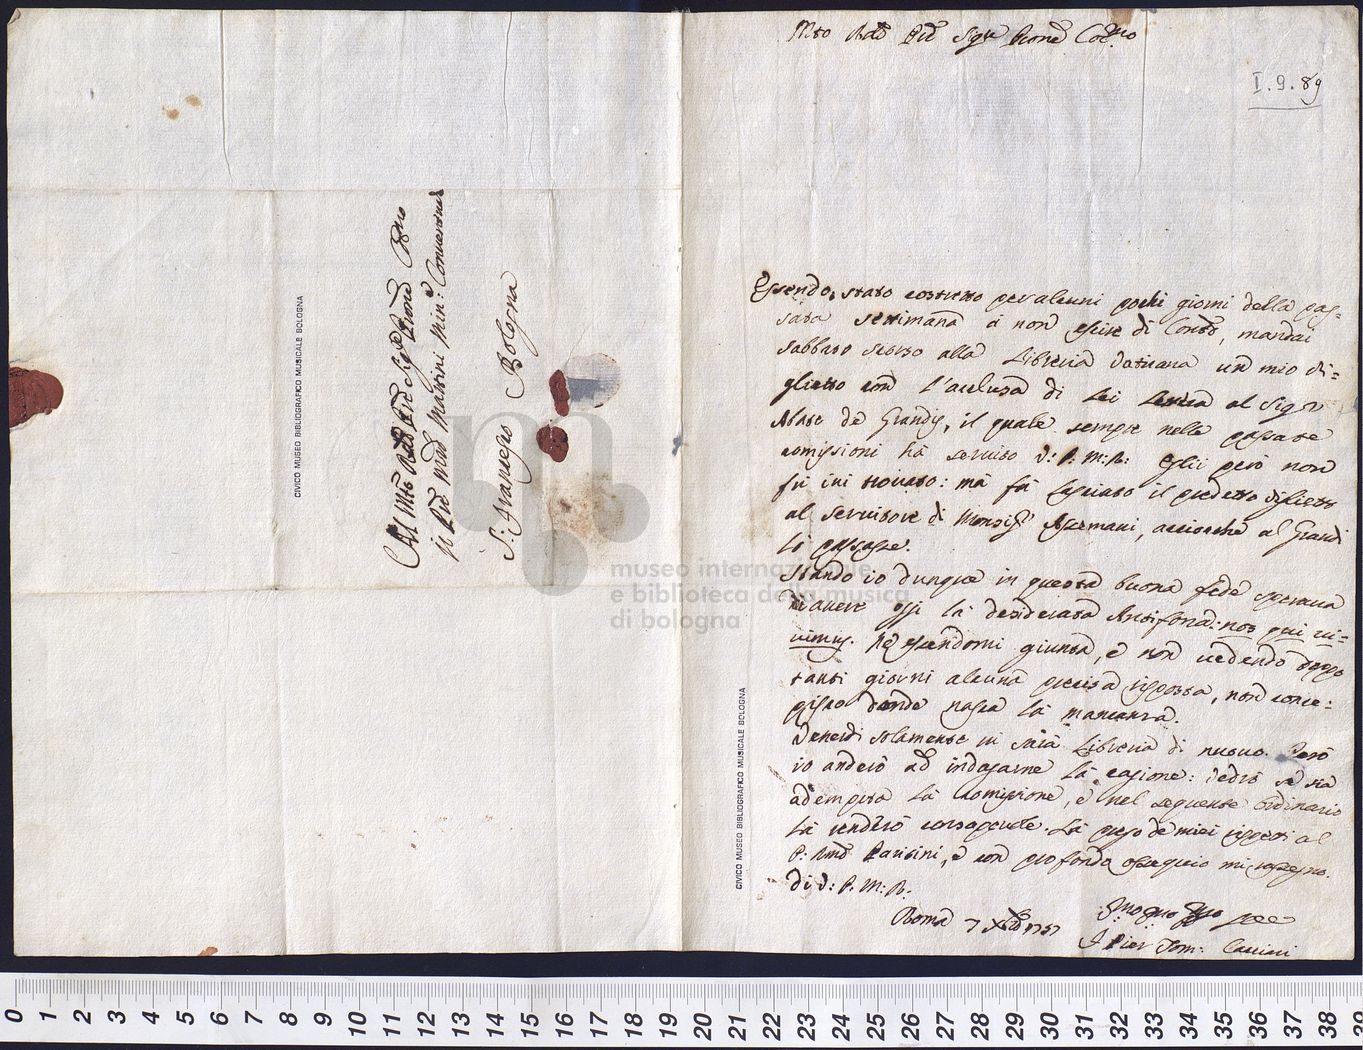 Al Mto Rdo Pre Sigr Prone Colmo
il Pre Mro Martini Min: Conventuale
S: Francesco Bologna
CIVICO MUSEO BIBLIOGRAFICO MUSICALE BOLOGNA
museo internazionale
e biblioteca della musica
di bologna
Mto Rdo Pre Sigr Prone Colmo
I.9.89
Essendo stato costretto per alcuni pochi giorni della pas-
sata settimana a non escire di Conto, mandai
Sabbato scorso alla Libreria Vaticana un mio bi-
glietto con l'acclusa di Lei lettera al Sigr
Abate de Grandis, il quale sempre nelle passate
comissioni hà servito V: P: M: R: Egli però non
fù ivi trovato: mà fù lasciato il predetto biglietto
al servitore di Monsigr Assemani, acciocchè al Grandi
lo passasse.
Stando io dunque in questa buona fede sperava
d'avere oggi la desiderata Antifona: nos qui vi-
vimus. Nè essendomi giunta, e non vedendo doppo
tanti giorni alcuna precisa risposta, non conce-
pisco donde nasca la mancanza.
Venerdì solamente vi sarà Libreria di nuovo. Però
io anderò ad indagarne la cagione: vedrò se sia
adempita la comissione, e nel seguente ordinario
la renderò consapevole. La prego de miei rispetti al
P: Pavisini, e con profondo ossequio mi rassegno.
di V: P: M: R:
Roma 7 Xbre 1757
CIVICO MUSEO BIBLIOGRAFICO MUSICALE BOLOGNA
F Pier Tom:
0 1 2 3 4 5 6 7 8 9 10 11 12 13 14 15 16 17 18 19 20 21 22 23 24 25 26 27 28 29 30 31 32 33 34 35 36 37 38